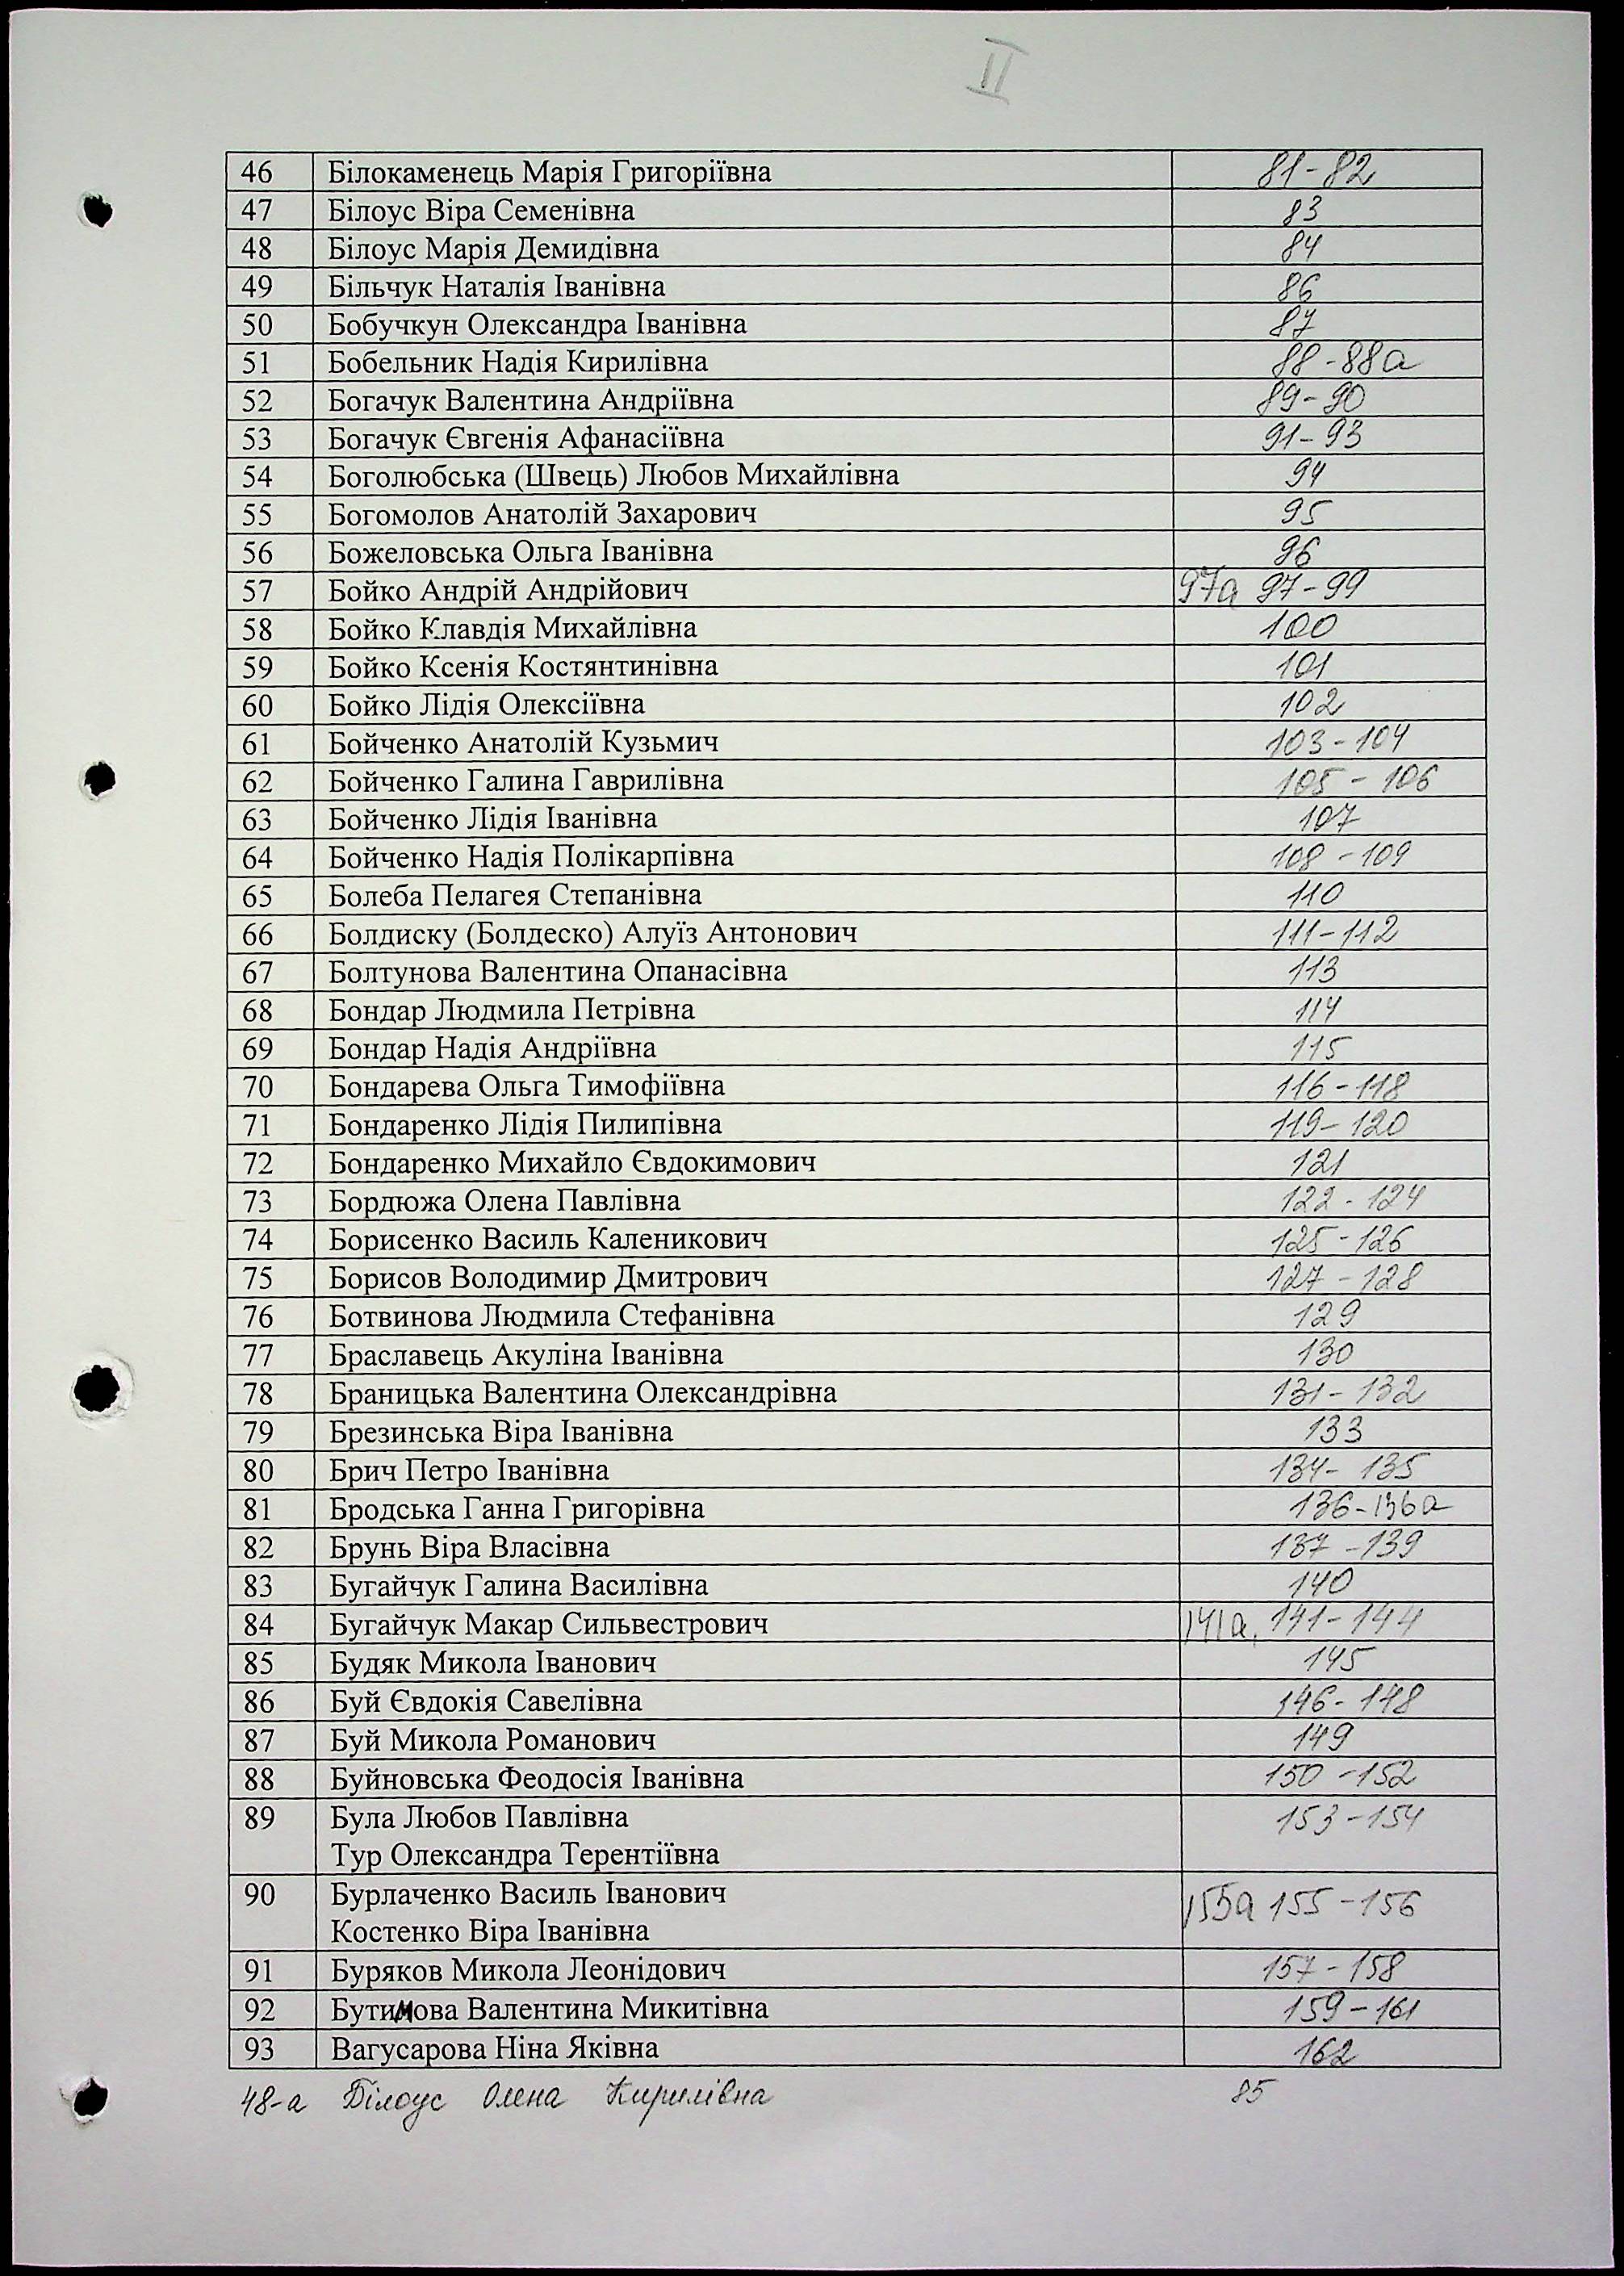 II
46 Білокаменець Марія Григоріївна 81-82
47 Білоус Віра Семенівна 83
48 Білоус Марія Демидівна 84
49 Більчук Наталія Іванівна 86
50 Бобучкун Олександра Іванівна 87
51 Бобельник Надія Кирилівна 88-88а
52 Богачук Валентина Андріївна 89-90
53 Богачук Євгенія Афанасіївна 91-93
54 Боголюбська (Швець) Любов Михайлівна 94
55 Богомолов Анатолій Захарович 95
56 Божеловська Ольга Іванівна 96
57 Бойко Андрій Андрійович 97а 97-99
58 Бойко Клавдія Михайлівна 100
59 Бойко Ксенія Костянтинівна 101
60 Бойко Лідія Олексіївна 102
61 Бойченко Анатолій Кузьмич 103-104
62 Бойченко Галина Гаврилівна 105-106
63 Бойченко Лідія Іванівна 107
64 Бойченко Надія Полікарпівна 108-109
65 Болеба Пелагея Степанівна 110
66 Болдиску (Болдеско) Алуїз Антонович 111-112
67 Болтунова Валентина Опанасівна 113
68 Бондар Людмила Петрівна 114
69 Бондар Надія Андріївна 115
70 Бондарева Ольга Тимофіївна 116-118
71 Бондаренко Лідія Пилипівна 119-120
72 Бондаренко Михайло Євдокимович 121
73 Бордюжа Олена Павлівна 122-124
74 Борисенко Василь Каленикович 125-126
75 Борисов Володимир Дмитрович 127-128
76 Ботвинова Людмила Стефанівна 129
77 Браславець Акуліна Іванівна 130
78 Браницька Валентина Олександрівна 131-132
79 Брезинська Віра Іванівна 133
80 Брич Петро Іванівна 134-135
81 Бродська Ганна Григорівна 136-136а
82 Брунь Віра Власівна 137-139
83 Бугайчук Галина Василівна 140
84 Бугайчук Макар Сильвестрович 141а, 141-144
85 Будяк Микола Іванович 145
86 Буй Євдокія Савелівна 146-148
87 Буй Микола Романович 149
88 Буйновська Феодосія Іванівна 150-152
89 Була Любов Павлівна 153-154
Тур Олександра Терентіївна
90 Бурлаченко Василь Іванович 155а 155-156
Костенко Віра Іванівна
91 Буряков Микола Леонідович 157-158
92 Бутимова Валентина Микитівна 159-161
93 Вагусарова Ніна Яківна 162
48-а Білоус Олена Кирилівна 85